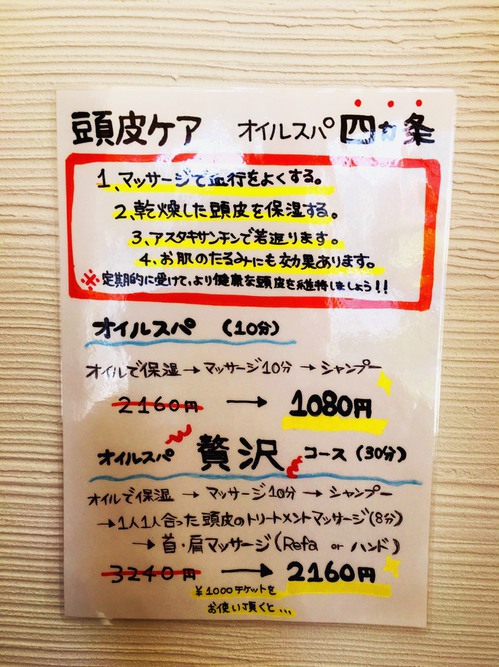 頭皮ケア オイルスパ 四ヵ条
1、マッサージで血行をよくする。
2、乾燥した頭皮を保湿する。
3、アスタキサンチンで若返ります。
4、お肌のたるみにも効果あります。
※定期的に受けて、より健康な頭皮を維持しましょう!!
オイルスパ (10分)
オイルで保湿→マッサージ10分→シャンプー
2160円 → 1080円
オイルスパ 贅沢 コース(30分)
オイルで保湿 → マッサージ10分 → シャンプー
→1人1人合った頭皮のトリートメントマッサージ(8分)
→ 首・肩マッサージ(Refa or ハンド)
3240円 → 2160円
¥1000チケットを
お使い頂くと...